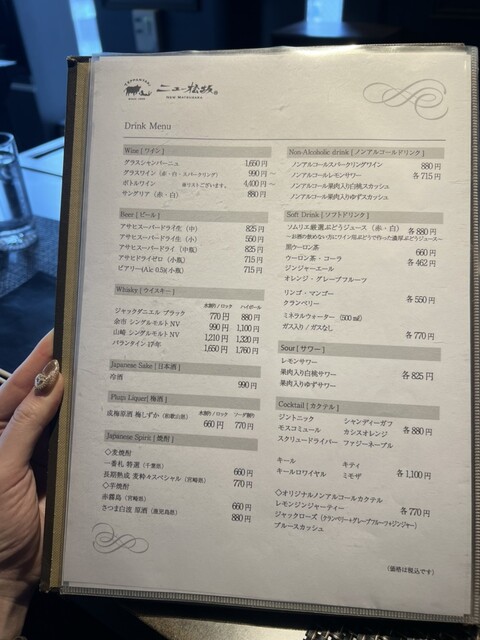 ニュー松阪
NEW MATSUSAKA
Drink Menu
Wine [ ワイン ]
グラスシャンパーニュ 1,650 円
グラスワイン（赤・白・スパークリング） 990 円 ～
ボトルワイン ※リストございます。 4,400 円 ～
サングリア（赤・白） 880 円
Beer [ ビール ]
アサヒスーパードライ生（中） 825 円
アサヒスーパードライ生（小） 550 円
アサヒスーパードライ（中瓶） 825 円
アサヒドライゼロ（小瓶） 715 円
ビアリー(Alc 0.5)( 小瓶 ) 715 円
Whisky [ ウイスキー ]
水割り/ロック ハイボール
ジャックダニエル ブラック 770 円 880 円
余市 シングルモルト NV 990 円 1,100 円
山崎 シングルモルト NV 1,210 円 1,320 円
バランタイン 17年 1,650 円 1,760 円
Japanese Sake [ 日本酒 ]
冷酒 990 円
Plum Liquer[ 梅酒 ]
水割り/ロック ソーダ割り
成梅原酒 梅しずか（和歌山県） 660 円 770 円
Japanese Spirit [ 焼酎 ]
◇麦焼酎
一番札 特選（千葉県） 660 円
長期熟成 麦粋々スペシャル（宮崎県） 770 円
◇芋焼酎
赤霧島（宮崎県） 660 円
さつま白波 原酒（鹿児島県） 880 円
Non-Alcoholic drink [ ノンアルコールドリンク ]
ノンアルコールスパークリングワイン 880 円
ノンアルコールレモンサワー 各 715 円
ノンアルコール果肉入り白桃スカッシュ
ノンアルコール果肉入りゆずスカッシュ
Soft Drink [ ソフトドリンク ]
ソムリエ厳選ぶどうジュース（赤・白） 各 880 円
～お酒の飲めない方にワイン用ぶどうで作った濃厚ぶどうジュース～
黒ウーロン茶 660 円
ウーロン茶・コーラ 各 462 円
ジンジャーエール
オレンジ・グレープフルーツ
リンゴ・マンゴー
クランベリー 各 550 円
ミネラルウォーター（500 ml）
ガス入り / ガスなし 各 770 円
Sour [ サワー ]
レモンサワー
果肉入り白桃サワー 各 825 円
果肉入りゆずサワー
Cocktail [ カクテル ]
ジントニック シャンディーガフ
モスコミュール カシスオレンジ 各 880 円
スクリュードライバー ファジーネーブル
キール キティ
キールロワイヤル ミモザ 各 1,100 円
◇オリジナルノンアルコールカクテル
レモンジンジャーティー 各 770 円
ジャックローズ（クランベリー+グレープフルーツ+ジンジャー）
ブルースカッシュ
（価格は税込です）